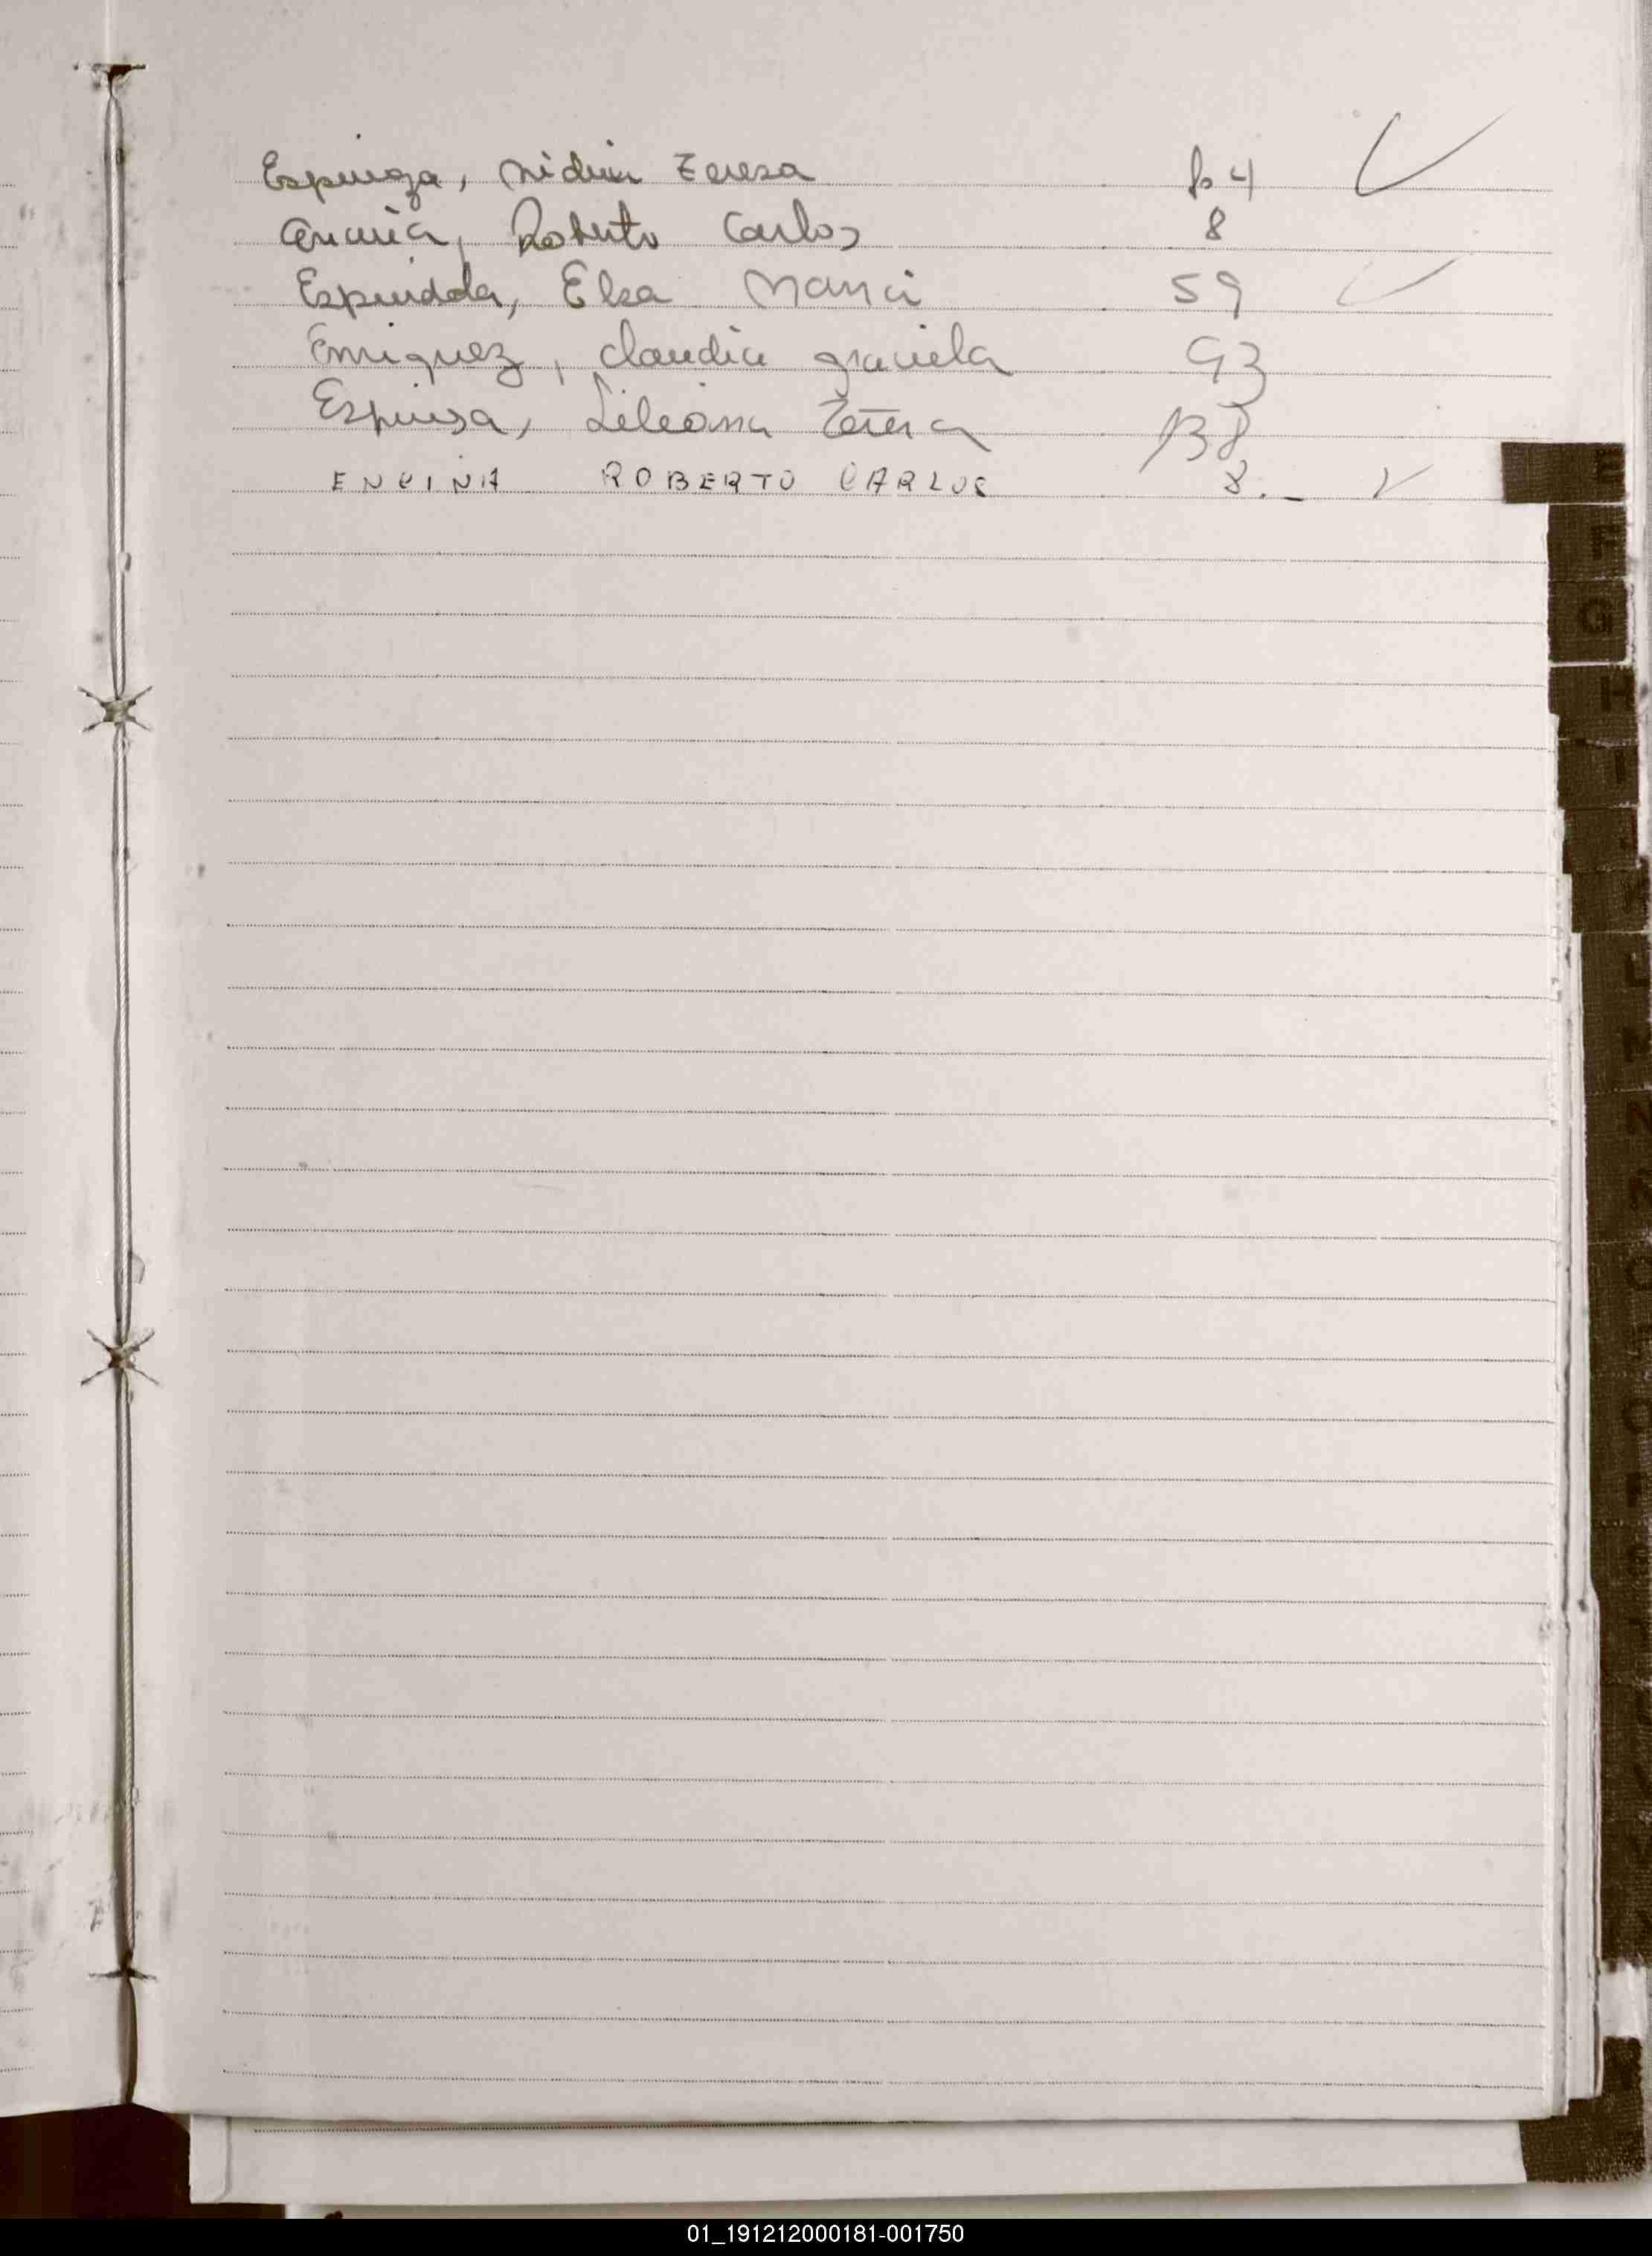 Espinoza, Nidia Teresa fs 4
Roberto Carlos 8
Espindola, Elsa Maria 59
Enriquez, Claudia Graciela 93
Espinosa, Liliana Teresa 138
ENCINA ROBERTO CARLOS 8._
E
F
G
H
I
01_191212000181-001750